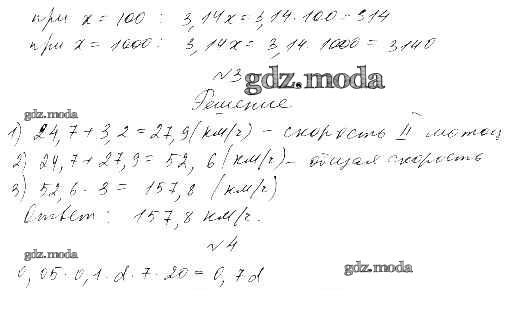 при x = 100 : 3,14x = 3,14 · 100 = 314
при x = 1000 : 3,14x = 3,14 · 1000 = 3140
№3 gdz.moda
Решение
gdz.moda
1) 24,7 + 3,2 = 27,9 (км/ч) – скорость II мотоц
2) 24,7 + 27,9 = 52,6 (км/ч) – общая скорость
3) 52,6 · 3 = 157,8 (км/ч)
Ответ : 157,8 км/ч.
№4
gdz.moda
0,05 · 0,1 · d · 7 · 20 = 0,7d
gdz.moda